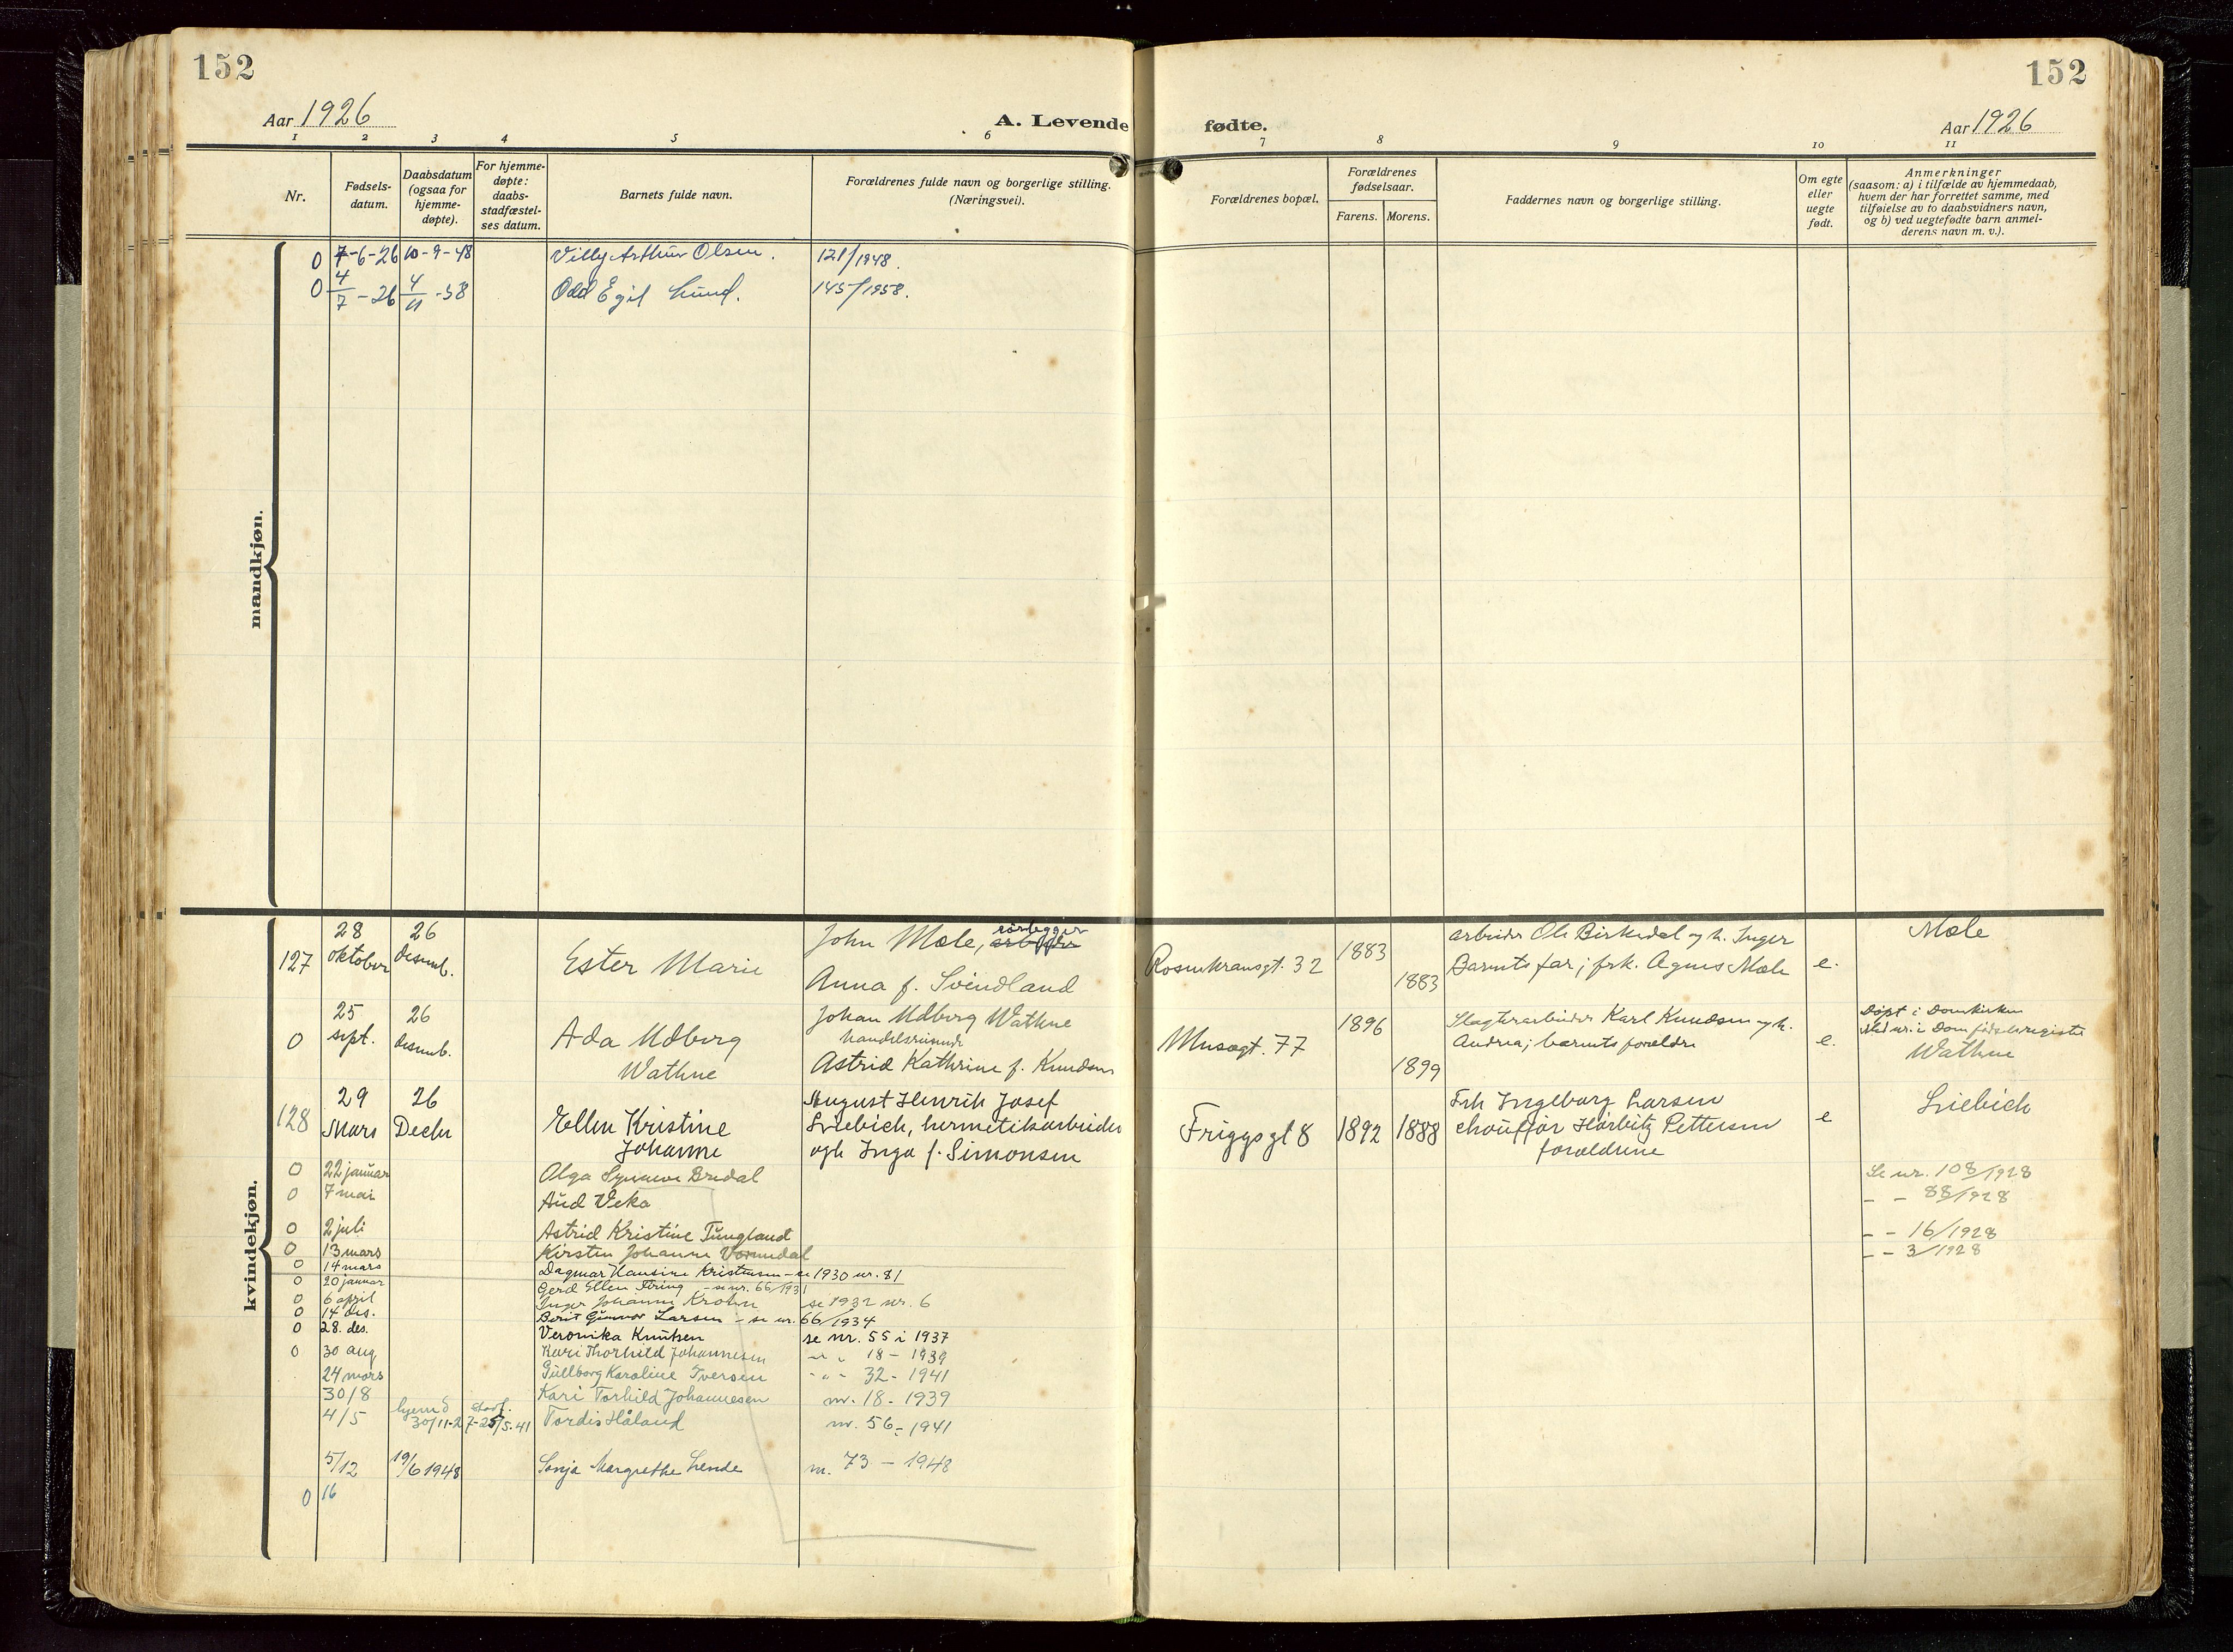 152
152
Aar 1926
A. Levende fødte.
Aar 1926
1 2 3 4 5 6 7 8 9 10 11
Nr.
Fødsels-
datum.
Daabsdatum
(ogsaa for
hjemme-
døpte).
For hjemme-
døpte:
daabs-
stadfæstel-
ses datum.
Barnets fulde navn.
Forældrenes fulde navn og borgerlige stilling.
(Næringsvei).
Forældrenes bopæl.
Forældrenes
fødselsaar.
Farens. Morens.
Faddernes navn og borgerlige stilling.
Om egte
eller
uegte
født.
Anmerkninger
(saasom: a) i tilfælde av hjemmedaab,
hvem der har forrettet samme, med
tilføielse av to daabsvidners navn,
og b) ved uegtefødte barn anmel-
derens navn m. v.).
mandkjøn.
0 7-6-26 10-9-48 Villy Arthur Olsen. 121/1948.
0 4/7-26 4/11-58 Odd Egil Lund. 145/1958.
kvindekjøn.
127
28
oktober
26
desemb.
Ester Marie
John Mæle, rørlegger
Anna f. Svindland
Rosenkransgt. 32
1883
1883
arbeider Ole Birkedal og h. Inger
Barnets far; frk. Agnes Mæle
e.
Mæle
0
25
sept.
26
desemb.
Ada Udberg
Wathne
Johan Udberg Wathne
handelsreisende
Astrid Kathrine f. Knudsen
Musegt. 77
1896
1899
Slagterarbeider Karl Knudsen og h.
Andrea; barnets forældre
e.
Døpt i Domkirken
Med nr. i Dom fødselsregister
Wathne
128
29
Mars
26
Decbr
Ellen Kristine
Johanne
August Henrik Josef
Liebich, hermetikarbeider
ogh Inga f. Simonsen
Friggsgt 8
1892
1888
Frk Ingeborg Larsen
chauffør Hørbitz Pettersen
forældrene
e
Liebich
0 22 januar Olga Synnøve Bredal Se nr. 108/1928
0 7 mai Aud Veka - - 88/1928
0 2 juli Astrid Kristine Tungland - - 16/1928
0 13 mars Kirsten Johanne Vormedal - - 3/1928
0 14 mars Dagmar Hansine Kristensen - se 1930 nr. 81
0 20 januar Gerd Ellen - se nr. 66/1931
0 6 april Inger Johanne Krohn se 1932 nr. 6
0 14 des. Berit Gunvor Larsen - se nr. 66/1934
0 28. des. Veronika Knutsen se nr. 55 i 1937
0 30 aug Kari Thorhild Johannesen - " - 18 - 1939
24 mars Gullborg Karoline Iversen - " - 32 - 1941
30/8 Kari Torhild Johannesen nr. 18 - 1939
4/5 hjemd 30/11-27 stadf. - 25/5-41 Tordis Håland nr. 56 - 1941
5/12 19/6 1948 Sonja Margrethe Lende nr. 73 - 1948
0 16